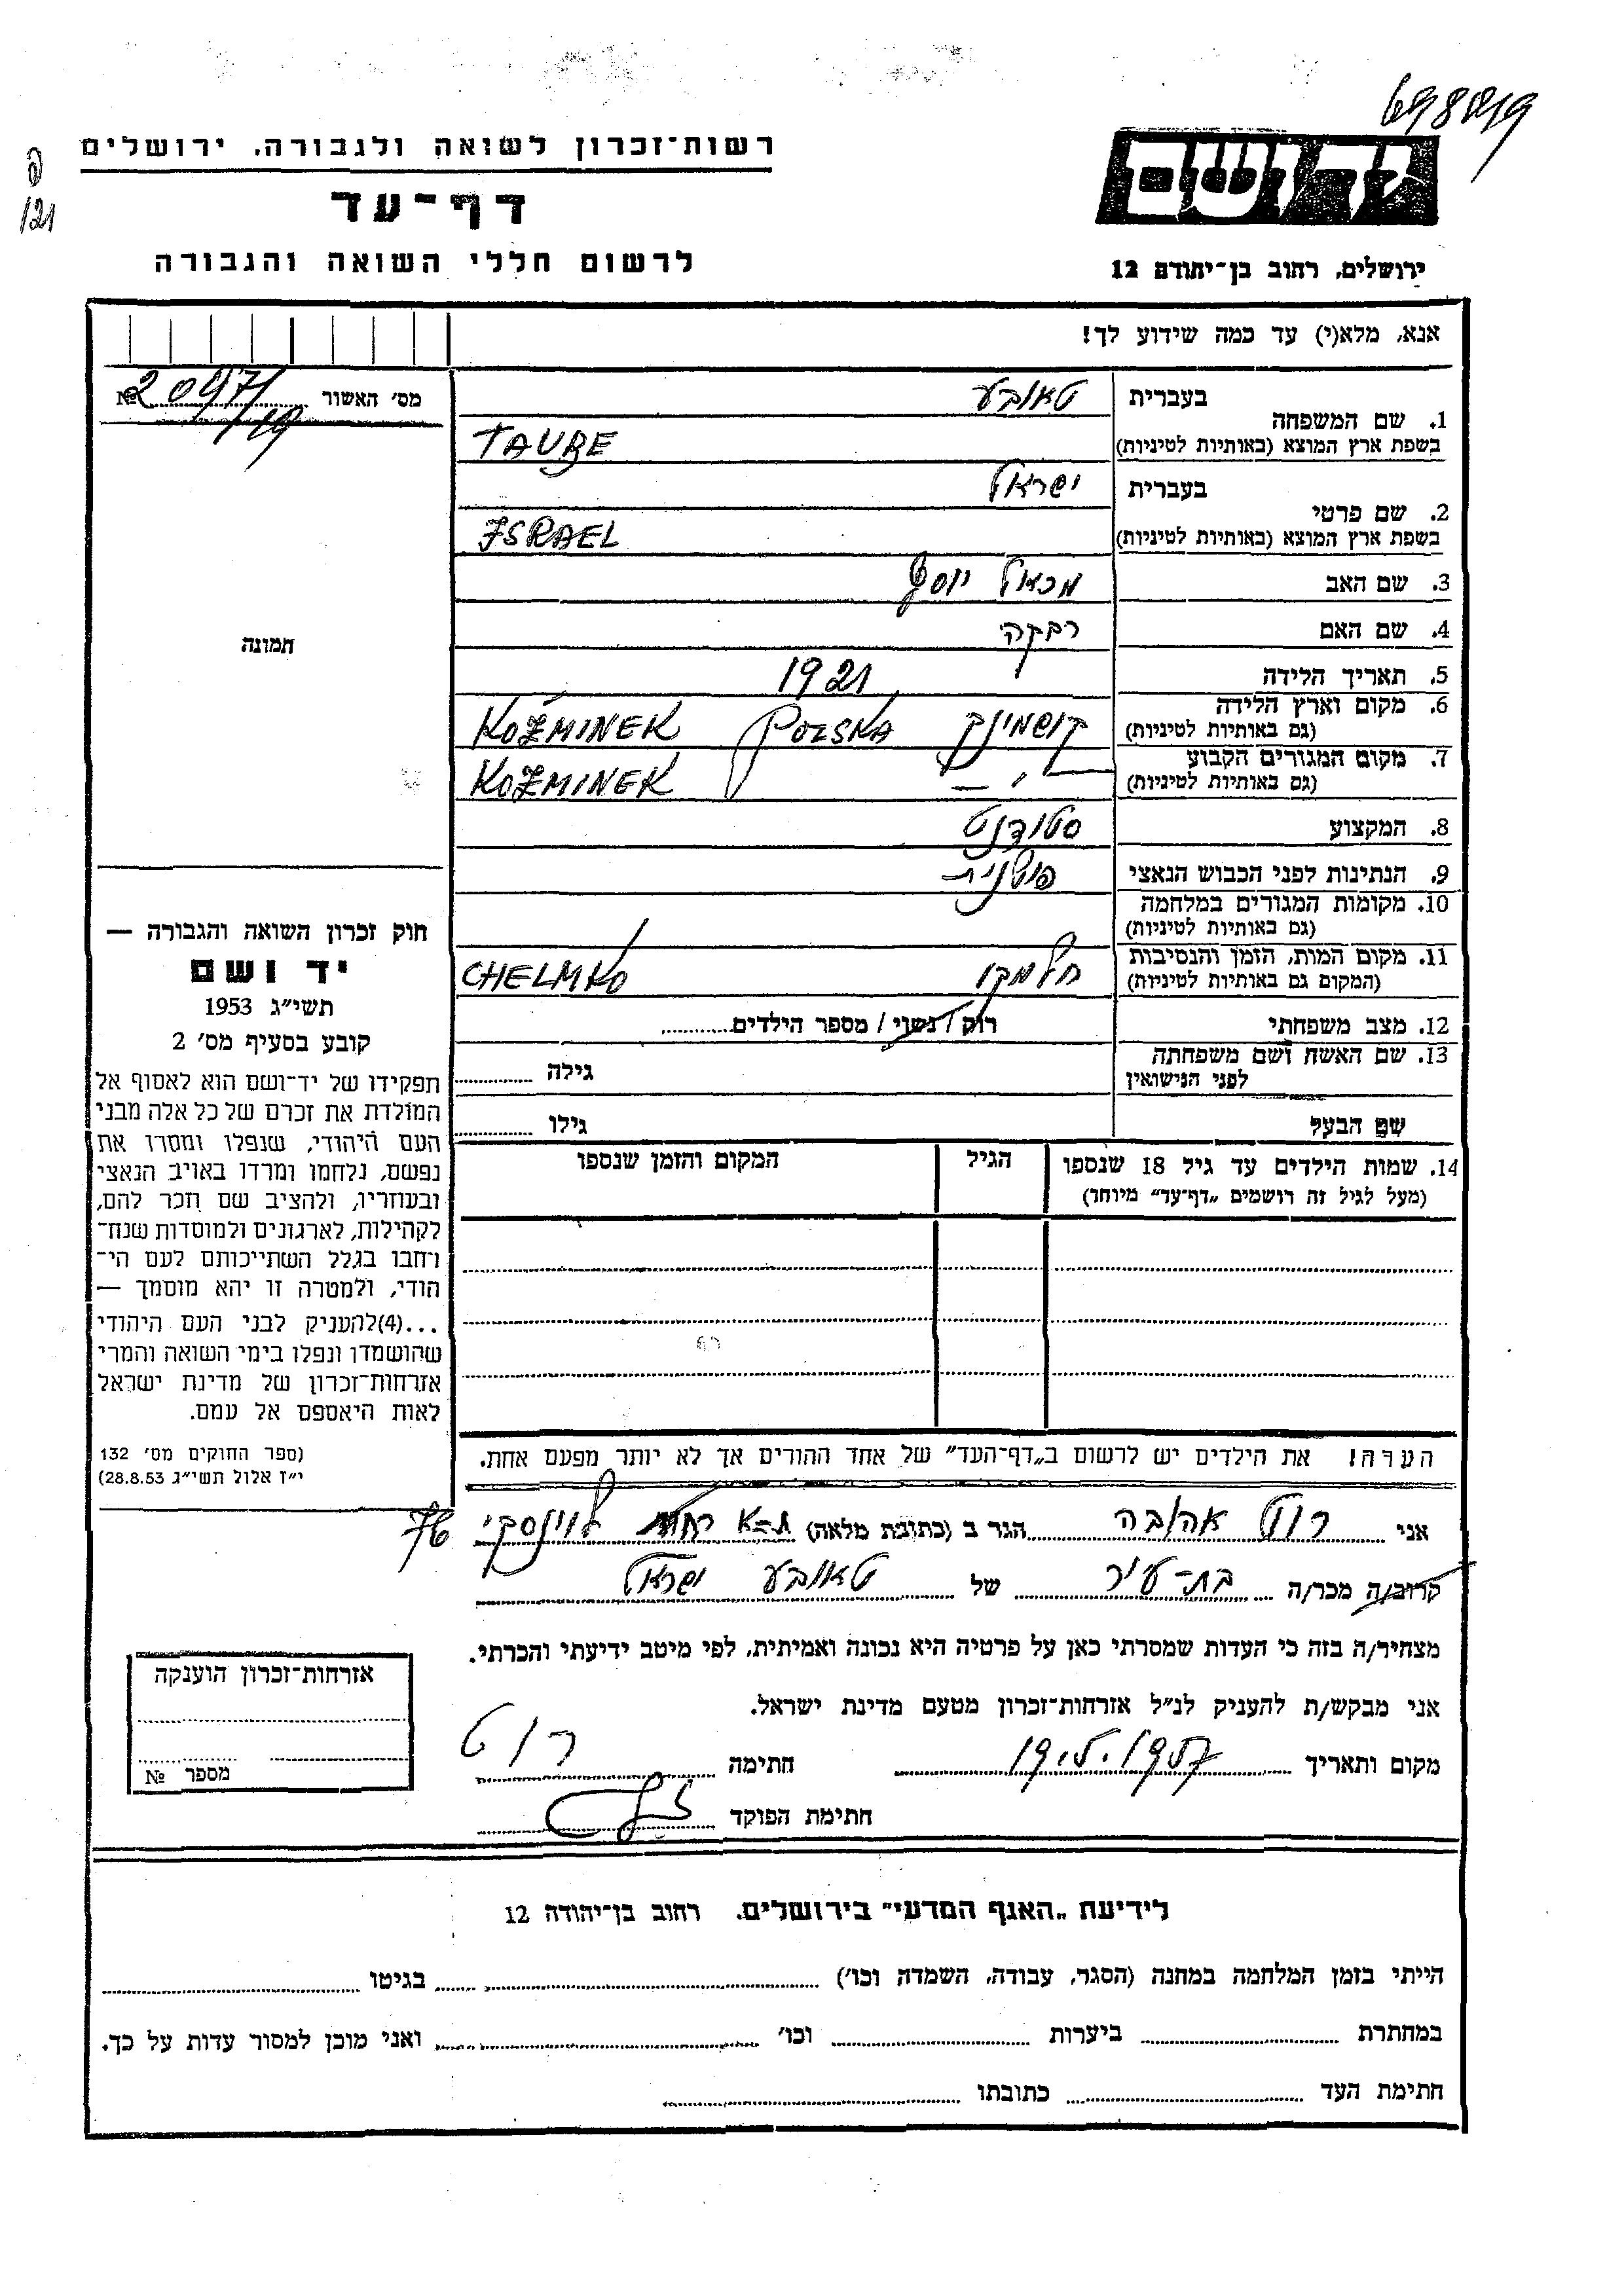 רשות־זכרון לשואה ולגבורה, ירושלים
דף־עד
לרשום חללי השואה והגבורה
יד ושם
ירושלים, רחוב בן־יהודה 12
121
אנא, מלא(י) עד כמה שידוע לך!
מס׳ האשור №
1. שם המשפחה
בעברית טאובע
בשפת ארץ המוצא (באותיות לטיניות) TAUBE
2. שם פרטי
בעברית ישראל
בשפת ארץ המוצא (באותיות לטיניות) ISRAEL
3. שם האב מכאל יוסף
4. שם האם רבקה
5. תאריך הלידה 1921
6. מקום וארץ הלידה (גם באותיות לטיניות) קושמינק POLSKA KOŹMINEK
7. מקום המגורים הקבוע (גם באותיות לטיניות) – ״ – KOŹMINEK
8. המקצוע סטודנט
9. הנתינות לפני הכבוש הנאצי פולנית
10. מקומות המגורים במלחמה (גם באותיות לטיניות)
11. מקום המות, הזמן והנסיבות (המקום גם באותיות לטיניות) חלמקו CHELMKO
12. מצב משפחתי רוק / נשוי / מספר הילדים
13. שם האשה ושם משפחתה לפני הנישואין גילה
שם הבעל גילו
14. שמות הילדים עד גיל 18 שנספו (מעל לגיל זה רושמים „דף־עד״ מיוחד)
הגיל
המקום והזמן שנספו
הערה! את הילדים יש לרשום ב„דף־העד״ של אחד ההורים אך לא יותר מפעם אחת.
תמונה
חוק זכרון השואה והגבורה —
יד ושם
תשי״ג 1953
קובע בסעיף מס׳ 2
תפקידו של יד־ושם הוא לאסוף אל
המולדת את זכרם של כל אלה מבני
העם היהודי, שנפלו ומסרו את
נפשם, נלחמו ומרדו באויב הנאצי
ובעוזריו, ולהציב שם וזכר להם,
לקהילות, לארגונים ולמוסדות שנח־
רחבו בגלל השתייכותם לעם הי־
הודי, ולמטרה זו יהא מוסמך —
...(4)להעניק לבני העם היהודי
שהושמדו ונפלו בימי השואה והמרי
אזרחות־זכרון של מדינת ישראל
לאות היאספם אל עמם.
(ספר החוקים מס׳ 132
י״ז אלול תשי״ג 28.8.53)
אני רוט אהובה הגר ב (כתובת מלאה) ת-א רח׳ לוינסקי 76
קרוב/ה מכר/ה בת-עיר של טאובע ישראל
מצהיר/ה בזה כי העדות שמסרתי כאן על פרטיה היא נכונה ואמיתית, לפי מיטב ידיעתי והכרתי.
אני מבקש/ת להעניק לנ״ל אזרחות־זכרון מטעם מדינת ישראל.
מקום ותאריך 19.5.1957 חתימה רוט
חתימת הפוקד
אזרחות־זכרון הוענקה
מספר №
לידיעת „האגף המדעי״ בירושלים. רחוב בן־יהודה 12
הייתי בזמן המלחמה במחנה (הסגר, עבודה, השמדה וכו׳) בגיטו
במחתרת ביערות וכו׳ ואני מוכן למסור עדות על כך.
חתימת העד כתובתו